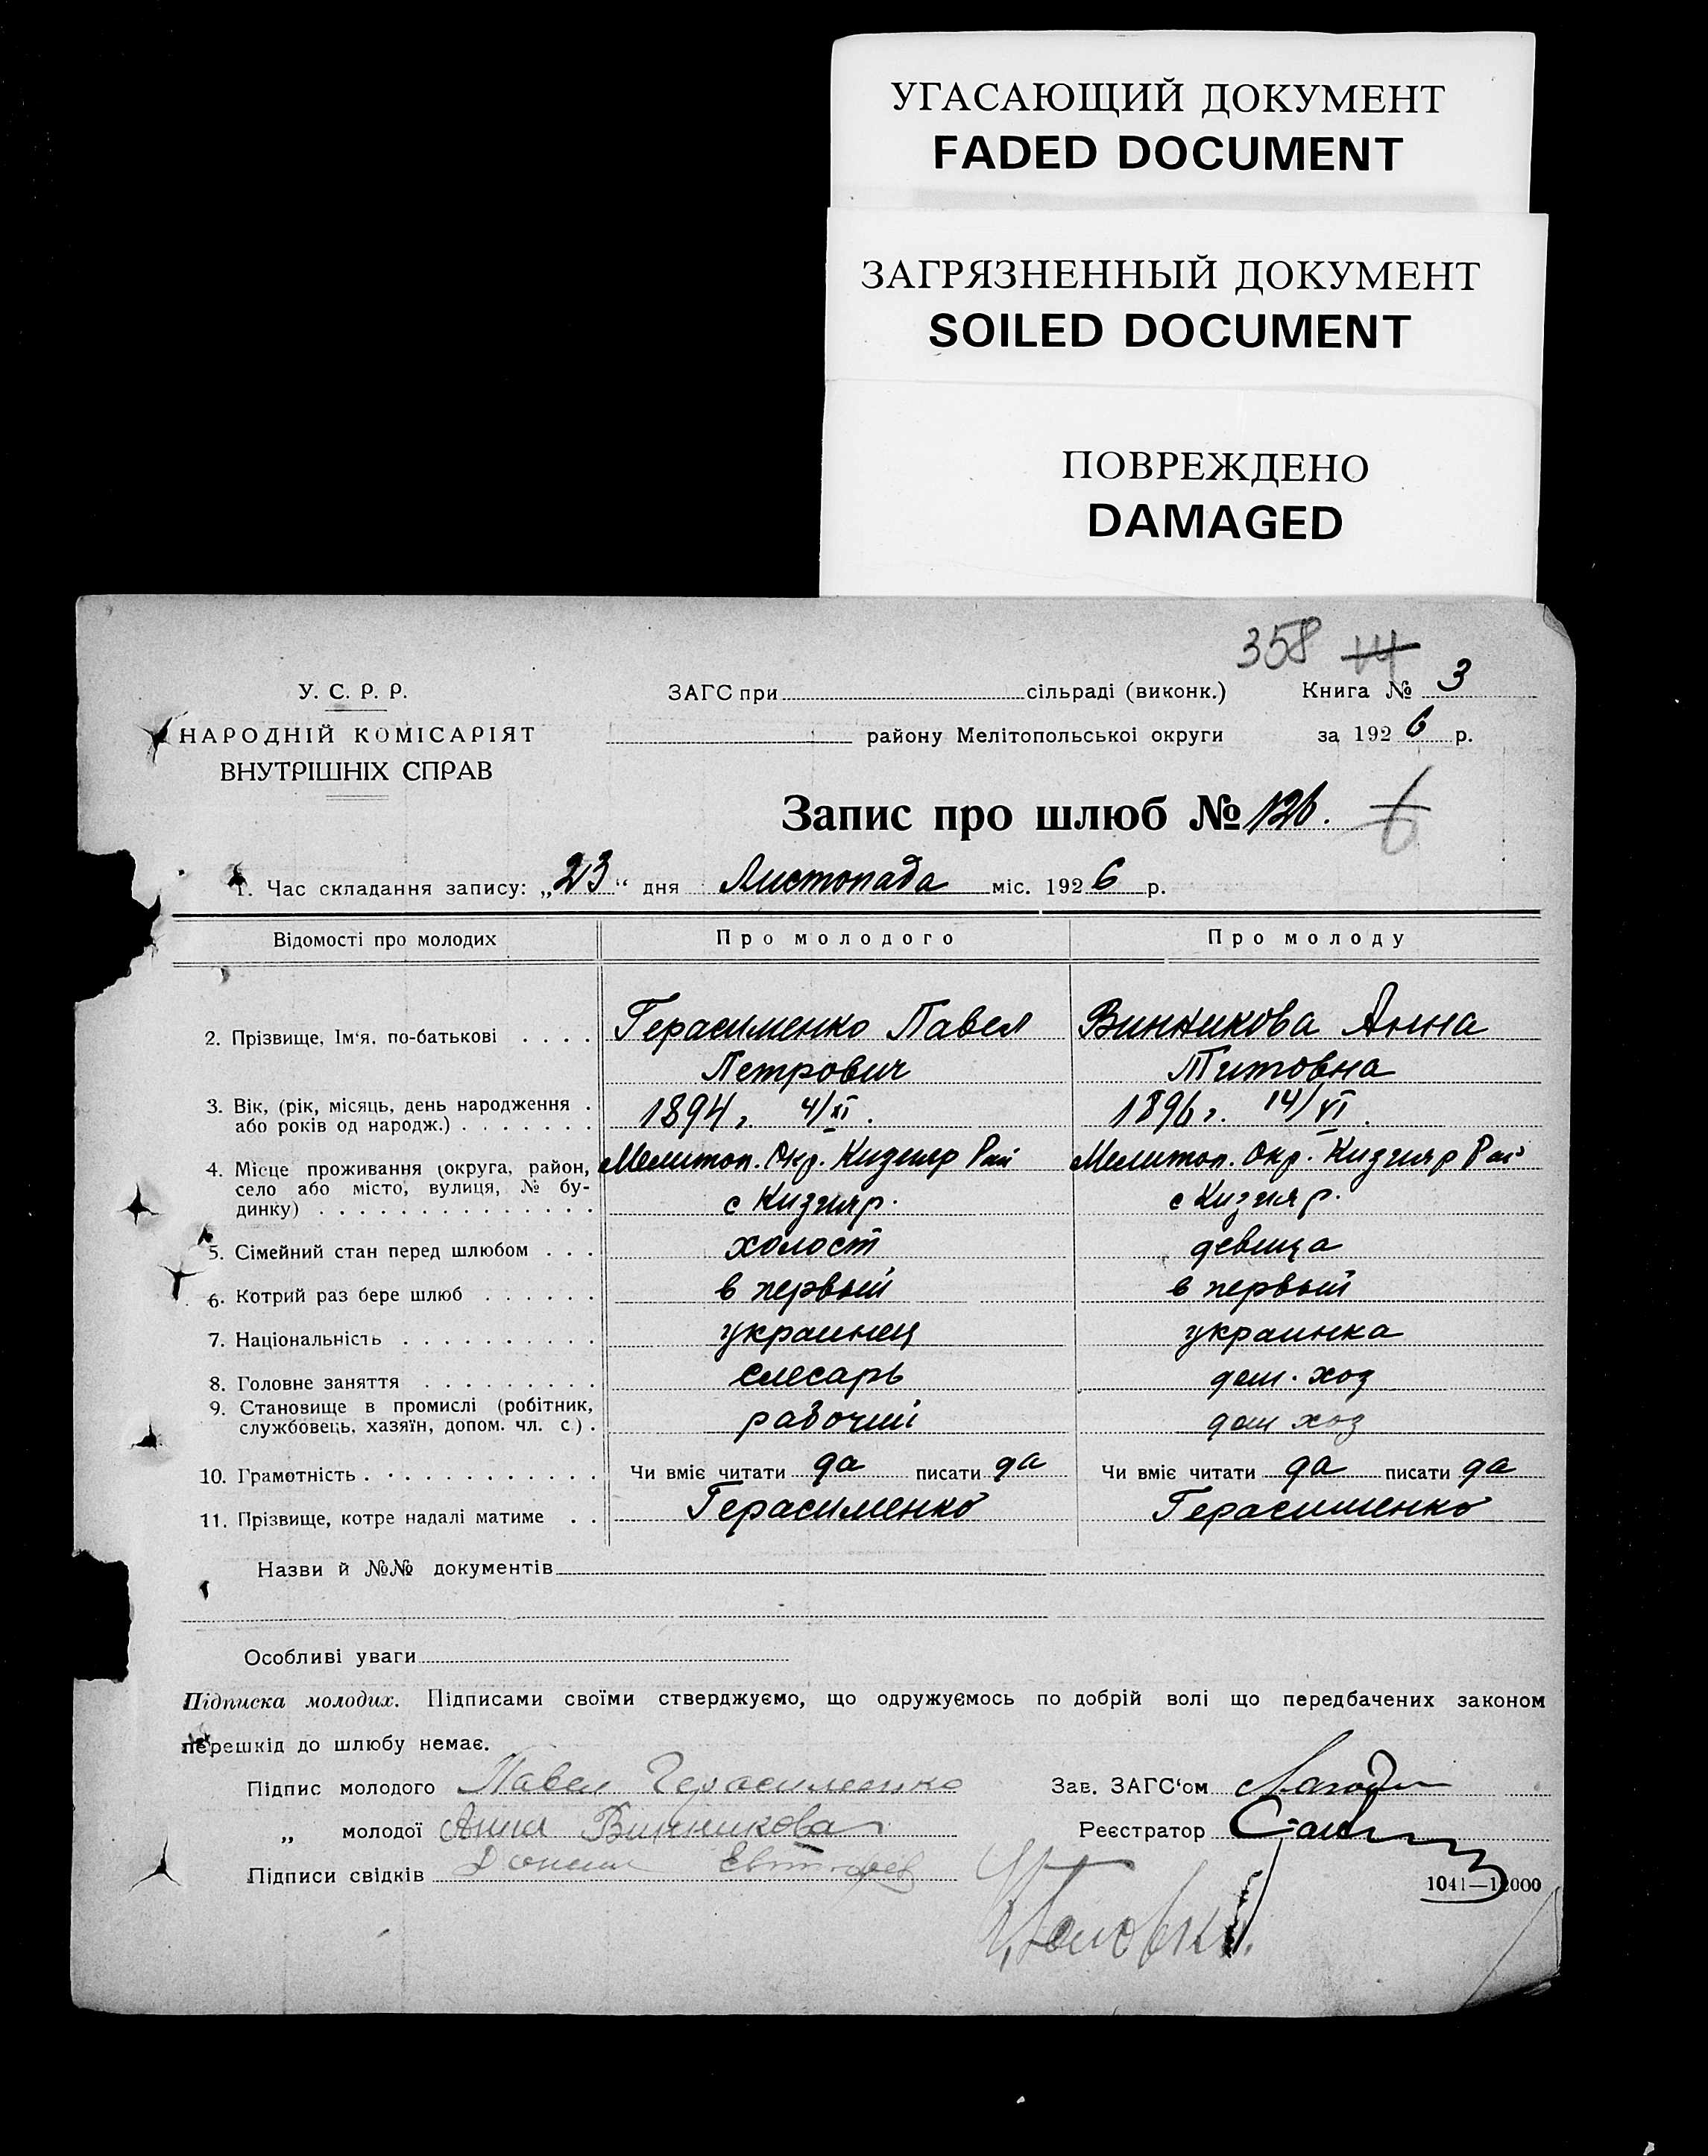 УГАСАЮЩИЙ ДОКУМЕНТ
FADED DOCUMENT
ЗАГРЯЗНЕННЫЙ ДОКУМЕНТ
SOILED DOCUMENT
ПОВРЕЖДЕНО
DAMAGED
358 14
У. С. Р. Р.
НАРОДНІЙ КОМІСАРІЯТ
ВНУТРІШНІХ СПРАВ
ЗАГС при сільраді (виконк.) Книга № 3
району Мелітопольської округи за 1926 р.
Запис про шлюб № 126. 6
1. Час складання запису: „23“ дня Листопада міс. 1926 р.
Відомості про молодих Про молодого Про молоду
2. Прізвище, Ім'я, по-батькові . . . . Герасименко Павел Винникова Анна
Петрович Титовна
3. Вік, (рік, місяць, день народження . або років од народж.) . . . . . . . 1894 г. 4/XI. 1896 г. 14/VI.
4. Місце проживання (округа, район, Мелитоп. Окр. Кизияр Рай Мелитоп. Окр. Кизияр Рай
село або місто, вулиця, № бу-
динку) . . . . . . . . . . . . . . с Кизияр. с Кизияр.
5. Сімейний стан перед шлюбом . . . холост девица
6. Котрий раз бере шлюб . . . . . . в первый в первый
7. Національність . . . . . . . . . . украинец украинка
8. Головне заняття . . . . . . . . . слесарь дом. хоз
9. Становище в промислі (робітник,
службовець, хазяїн, допом. чл. с.) . рабочий дом хоз
10. Грамотність . . . . . . . . . . . . Чи вміє читати да писати да Чи вміє читати да писати да
11. Прізвище, котре надалі матиме . . Герасименко Герасименко
Назви й №№ документів
Особливі уваги
Підписка молодих. Підписами своїми стверджуємо, що одружуємось по добрій волі що передбачених законом
перешкід до шлюбу немає.
Підпис молодого Павел Герасименко Зав. ЗАГС'ом
„ молодої Анна Винникова Реєстратор
Підписи свідків
1041—12000